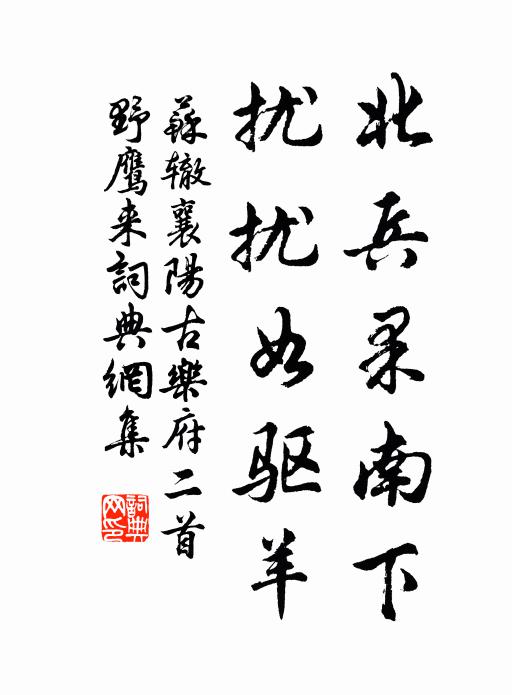 北兵果南下
扰扰如驱羊
蘇辙襄陽古樂府二首
野鷹来詞典網集
詞典网印